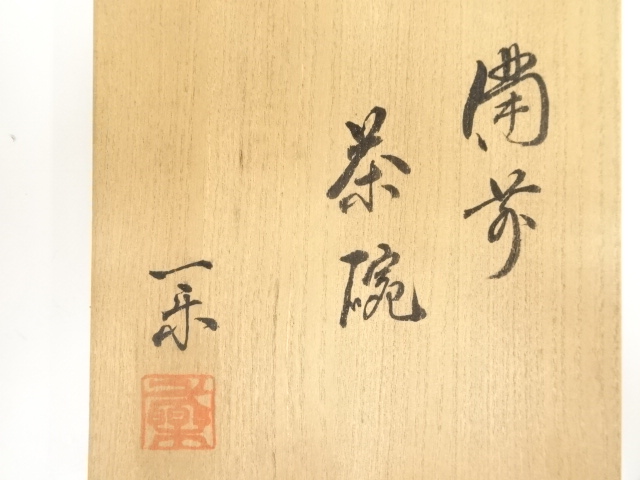 備前
茶碗
一楽